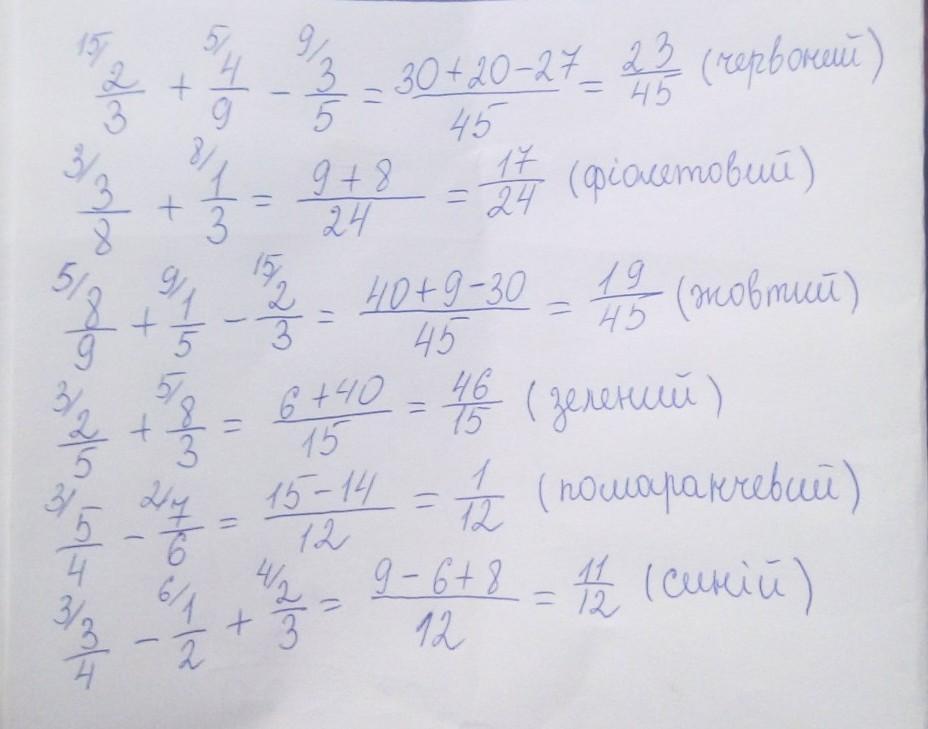 15/ 2/3 + 5/ 4/9 - 9/ 3/5 = 30+20-27/45 = 23/45 (червоний)
3/ 3/8 + 8/ 1/3 = 9+8/24 = 17/24 (фіолетовий)
5/ 8/9 + 9/ 1/5 - 15/ 2/3 = 40+9-30/45 = 19/45 (жовтий)
3/ 2/5 + 5/ 8/3 = 6+40/15 = 46/15 (зелений)
3/ 5/4 - 2/ 7/6 = 15-14/12 = 1/12 (помаранчевий)
3/ 3/4 - 6/ 1/2 + 4/ 2/3 = 9-6+8/12 = 11/12 (синій)